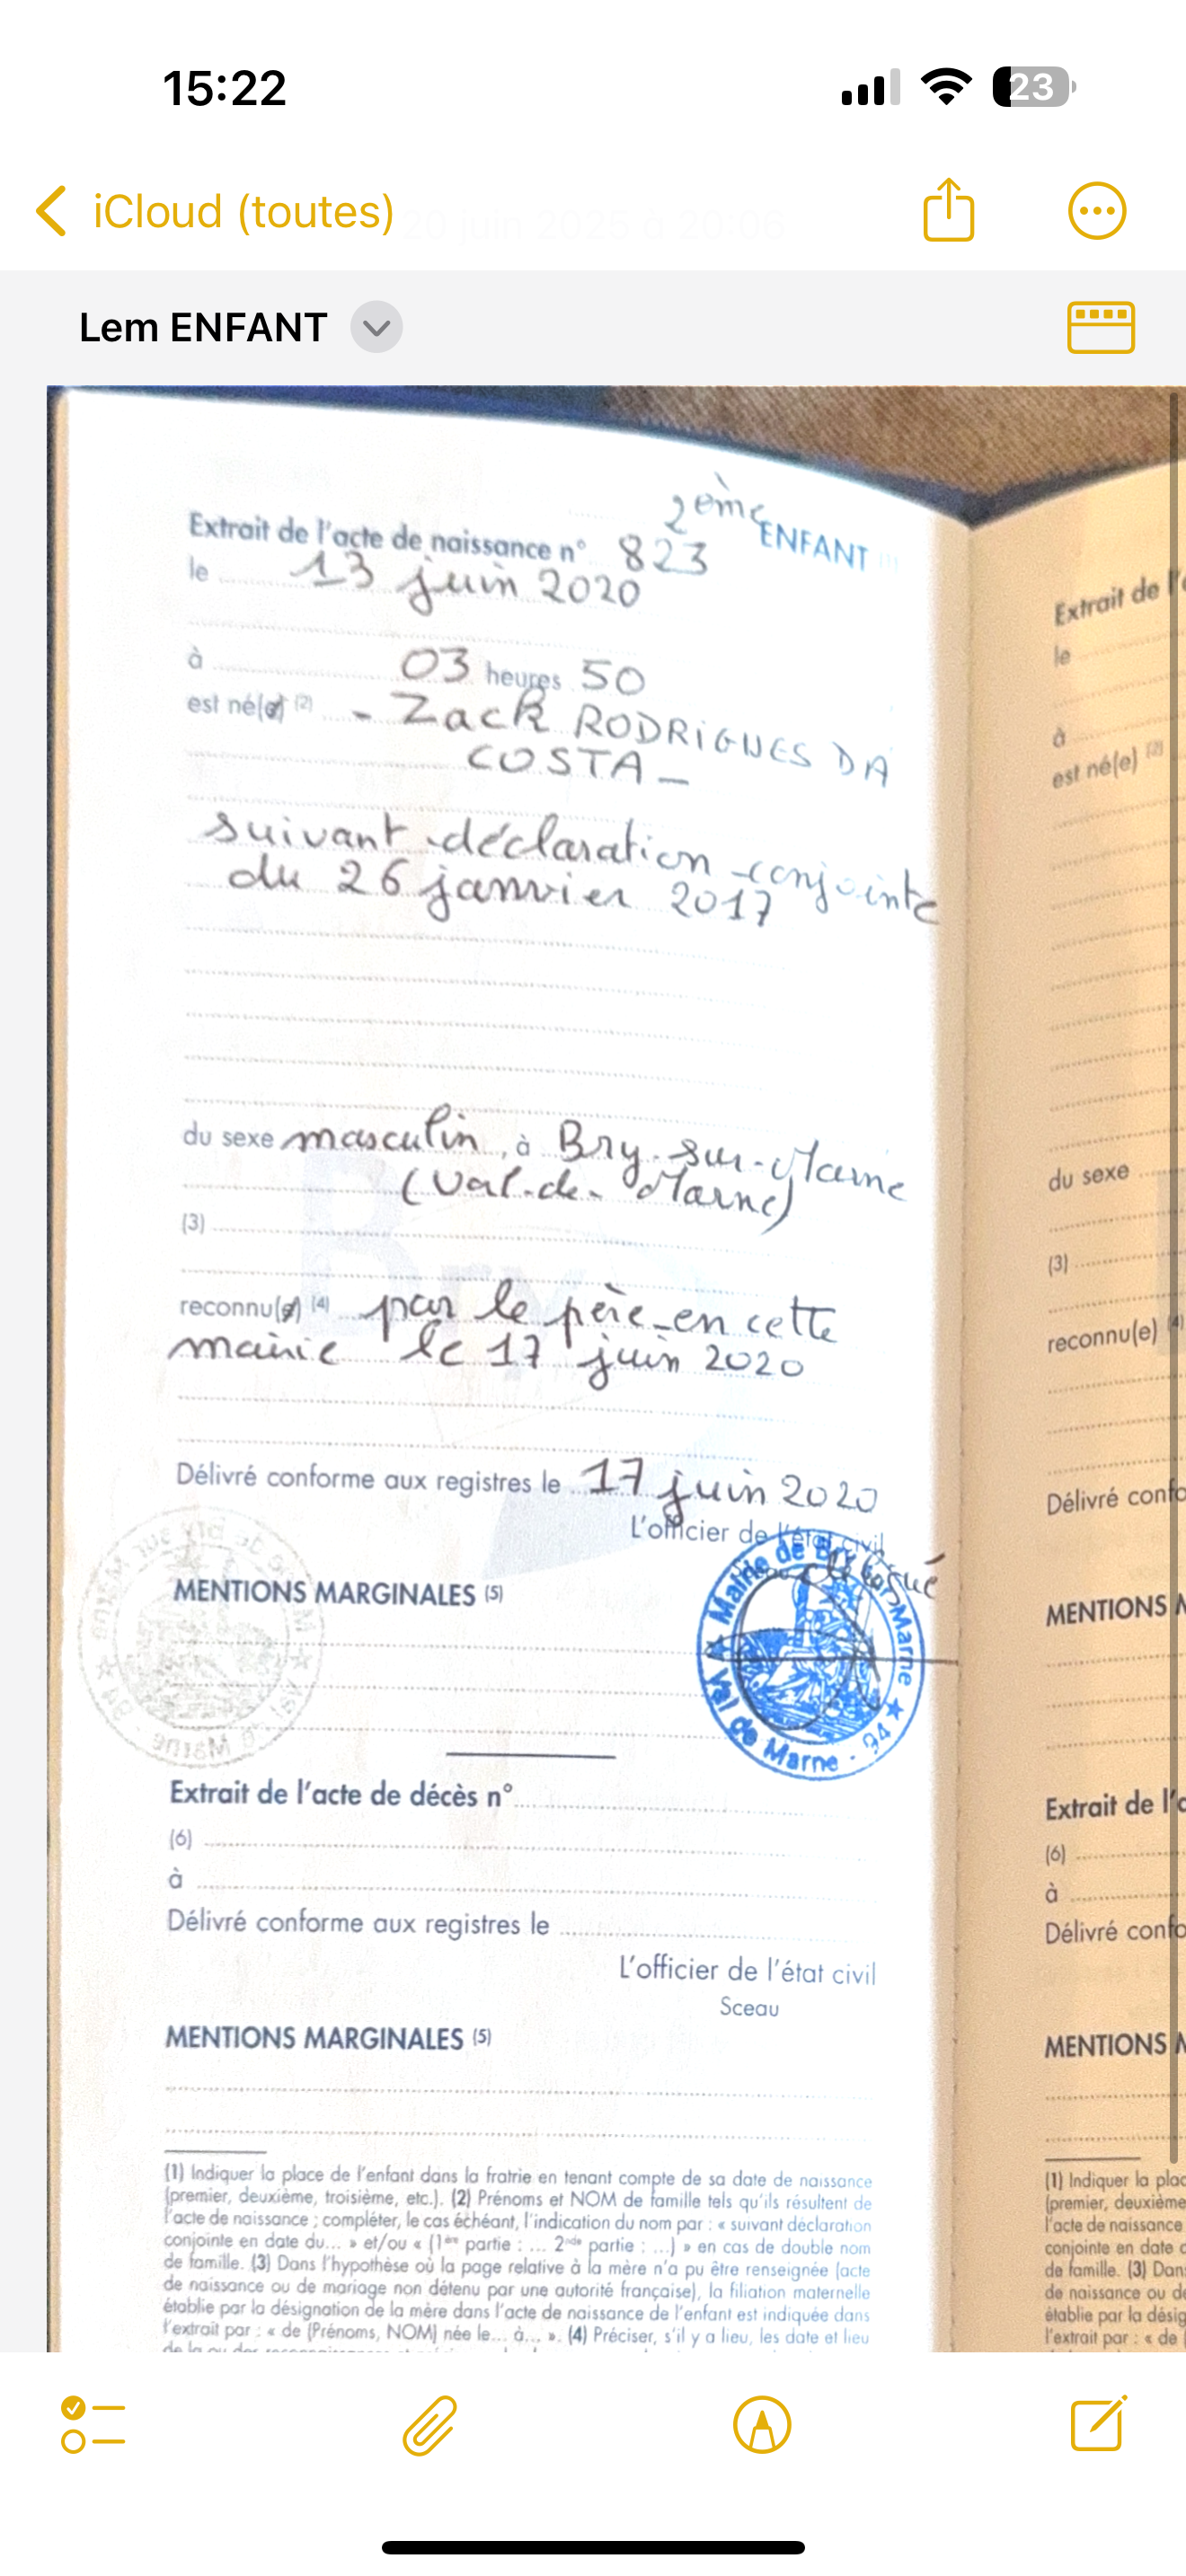 15:22
23
iCloud (toutes)
20 juin 2025 à 20:06
Lem ENFANT
2ème ENFANT
Extrait de l'acte de naissance n° 823
le 13 juin 2020
à 03 heures 50
est né(e) (2) - Zack RODRIGUES DA
COSTA -
suivant déclaration conjointe
du 26 janvier 2017
du sexe masculin, à Bry-sur-Marne
(Val-de-Marne)
(3)
reconnu(e) (4) par le père en cette
mairie le 17 juin 2020
Délivré conforme aux registres le 17 juin 2020
L'officier de l'état civil
Mairie de Bry sur Marne
Val de Marne - 94
MENTIONS MARGINALES (5)
Extrait de l'acte de décès n°
(6)
à
Délivré conforme aux registres le
L'officier de l'état civil
Sceau
MENTIONS MARGINALES (5)
(1) Indiquer la place de l'enfant dans la fratrie en tenant compte de sa date de naissance
(premier, deuxième, troisième, etc.). (2) Prénoms et NOM de famille tels qu'ils résultent de
l'acte de naissance ; compléter, le cas échéant, l'indication du nom par : « suivant déclaration
conjointe en date du... » et/ou « (1ère partie : ... 2nde partie : ...) » en cas de double nom
de famille. (3) Dans l'hypothèse où la page relative à la mère n'a pu être renseignée (acte
de naissance ou de mariage non détenu par une autorité française), la filiation maternelle
établie par la désignation de la mère dans l'acte de naissance de l'enfant est indiquée dans
l'extrait par : « de (Prénoms, NOM) née le... à... ». (4) Préciser, s'il y a lieu, les date et lieu
Extrait de l'
le
à
est né(e) (2)
du sexe
(3)
reconnu(e) (4)
Délivré
MENTIONS
Extrait de
(6)
à
Délivré
MENTIONS
(1) Indiquer la
(premier, deuxième
l'acte de naissance
conjointe en date
de famille. (3)
de naissance ou
établie par la
l'extrait par : « de